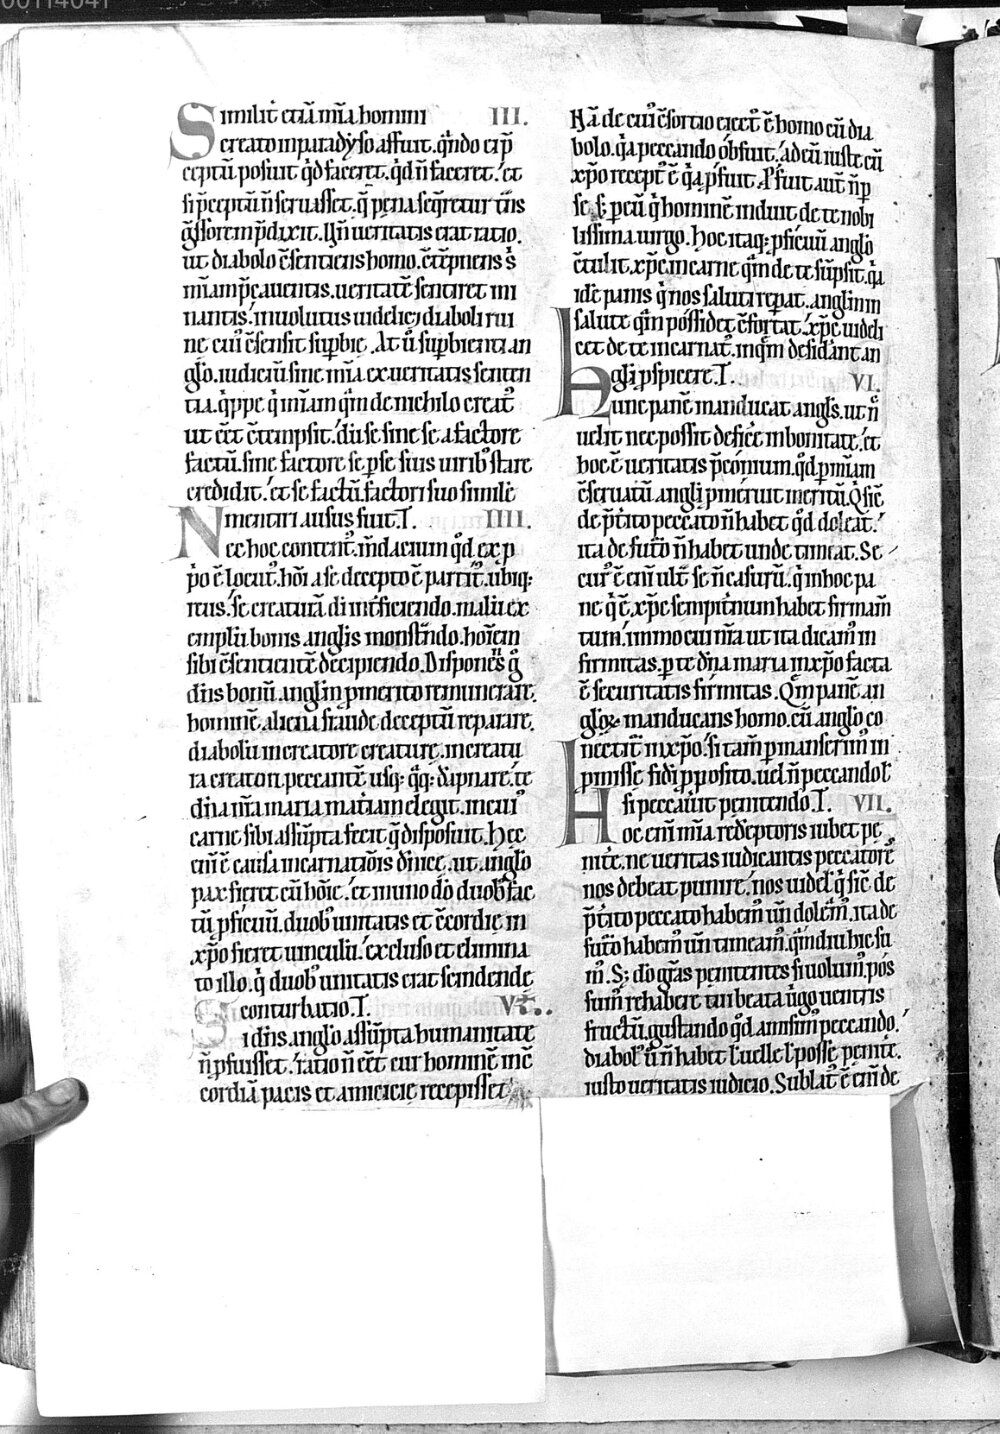 00114041
Similit̄ etiā mīa homini III.
se creato in paradyso affuit. q̄ndo ei p̄
ceptū posuit qd̄ faceret. qd̄ n̄ faceret. et
si p̄ceptū n̄ seruasset. q̄ pena seq̄retur t̄ns
g̃ssorem p̄dixit. Un̄ ueritatis erat ratio.
ut diabolo c̄sentiens homo. c̄tēpnens s̄
mīam p̄cauentis. ueritatē sentiret mi
nantis. inuolutus uidelic; diaboli rui
ne cui' c̄sensit supbie. At ū supbienti an
glo. iudiciū sine mīa ex ueritatis senten
tia. q̄ppe q̄ mīam q̄m de nichilo creat̄
ut eēt c̄tempsit. dū se sine se a factore
factū. sine factore se p se suis uirib' stare
credidit. et se factū factori suo similē
mentiri ausus fuit. T. IIII.
Nec hoc content'. m̄dacium qd̄ ex p
p̄o ē locut'. hōi a se decepto ē partit'. ubiq;
reus. se creaturā di int̄ficiendo. malū ex
emplū bonis anglis monst̄ndo. hoīem
sibi c̄sentientē decipiendo. Disponēs g̊
dn̄s bonū anglm p merito remunerare.
hominē aliena fraude deceptū reparare.
diabolū in creatore creature. in creatu
ra creatori peccantē usq; q̄q; dāpnare. te
dn̄a nr̄a maria matrem elegit. in cui'
carne sibi assūpta fecit q̄ disposuit. Hec
eni ē causa incarnatiōis diuīe. ut anglo
pax fieret cū hōīe. et in uno dō duob' fac
tū p̄ficuū. duob' unitatis et c̄cordie in
xp̄o fieret uinculū. excluso et elimina
to illo. q̄ duob' unitatis erat scindende
conturbatio. T. V.
Si dn̄s. anglo assūpta humanitate
n̄ pfuisset. ratio n̄ eēt cur hominē in c̄
cordiā pacis et amicicie recepisset
Nā de cui' c̄sortio eiect' ē homo cū dia
bolo. q̄a peccando obfuit. ad eū iuste cū
xp̄o recept' ē q̄a pfuit. Pfuit aut n̄ p
se. s; p eū q̄ hominē induit de te nobi
lissima uirgo. Hoc itaq; p̄ficuū anglo
c̄tulit. xp̄c incarne q̄m de te sūpsit. q̄a
idē panis q̄ nos saluti repat. anglm in
salute q̄m possidet c̄fortat. xp̄c uideli
cet de te incarnat'. in q̄m desid̄ant an
geli pspicere. T. VI.
Hunc panē manducat angl's. ut n̄
uelit nec possit defic̄e in bonitate. et
hoc ē ueritatis p̄conium. qd̄ p mīam
c̄seruatū angli pmeruit meritū. Q; sic̄
de p̄t̄ito peccato n̄ habet qd̄ doleat.
ita de futo n̄ habet unde timeat. Se
cur' ē eni ult̄ se n̄ casurū. q̄ in hoc pa
ne q̄ ē xp̄c sempit̄num habet firmam
tum. immo cui nr̄a ut ita dicam' in
firmitas. p te dn̄a maria in xp̄o facta
ē securitatis firmitas. Q̄m panē an
glo₄ manducans homo. cū anglo co
nectit' in xp̄o. si tam p manserim' in
pmisse fidi pposito. uel n̄ peccando l̄
si peccauit penitendo. T. VII.
Hoc eni mīa redēptoris iubet pe
nitē. ne ueritas iudicantis peccatore
nos debeat punire. nos uidel; q̄ sic̄ de
p̄t̄ito peccato habem' un̄ dolem'. ita de
futo habem' un̄ timeam'. q̄mdiu hic su
m'. S; dō gr̄as penitentes si uolum'. pos
sum' rehabere tui beata ū̄go uentris
fructū. gustando qd̄ amisim' peccando.
diabol' ū n̄ habet l̄ uelle l̄ posse penitē.
iusto ueritatis iudicio. Sublat' ē eni de